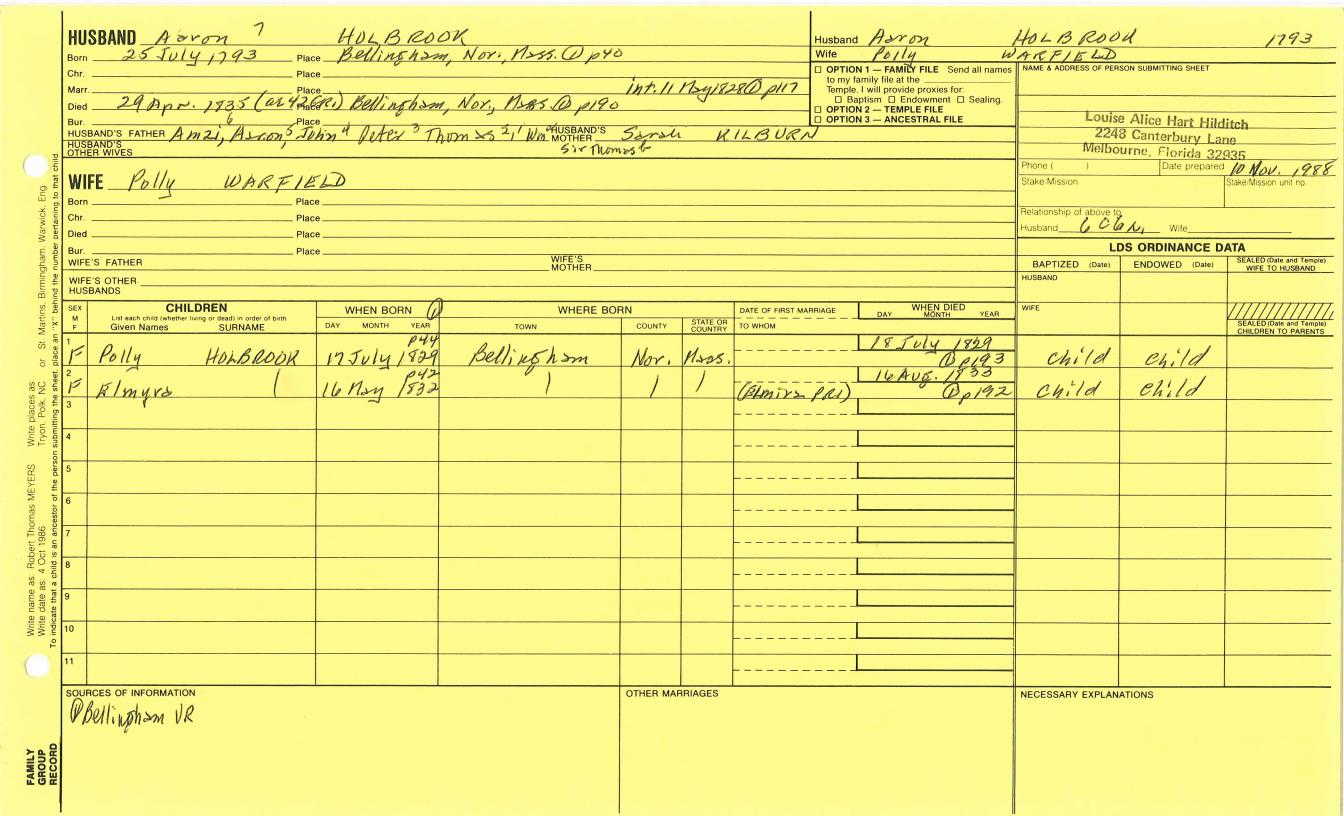 HUSBAND Aaron 7 HOLBROOK
Born 25 July 1793 Place Bellingham, Nor. Mass. ① p40
Chr. Place
Marr. Place int. 11 May 1828 ① p117
Died 29 Apr. 1835 (ae 42 GR1) Place Bellingham, Nor., Mass ① p190
Bur. Place
HUSBAND'S FATHER Amzi, 6 Aaron 5, John 4 Peter 3 Thomas 2, 1 Wm HUSBAND'S MOTHER Sarah KILBURN
HUSBAND'S OTHER WIVES Sir Thomas
Husband Aaron HOLBROOK 1793
Wife Polly WARFIELD
☐ OPTION 1 — FAMILY FILE Send all names
to my family file at the
Temple. I will provide proxies for:
☐ Baptism ☐ Endowment ☐ Sealing.
☐ OPTION 2 — TEMPLE FILE
☐ OPTION 3 — ANCESTRAL FILE
NAME & ADDRESS OF PERSON SUBMITTING SHEET
Louise Alice Hart Hilditch
2248 Canterbury Lane
Melbourne, Florida 32935
Phone ( ) Date prepared 10 Nov. 1988
Stake/Mission Stake/Mission unit no.
Relationship of above to
Husband 6C6R Wife
WIFE Polly WARFIELD
Born Place
Chr. Place
Died Place
Bur. Place
WIFE'S FATHER WIFE'S MOTHER
WIFE'S OTHER HUSBANDS
LDS ORDINANCE DATA
BAPTIZED (Date) ENDOWED (Date) SEALED (Date and Temple) WIFE TO HUSBAND
HUSBAND
WIFE
SEALED (Date and Temple) CHILDREN TO PARENTS
SEX M F
CHILDREN
List each child (whether living or dead) in order of birth
Given Names SURNAME
WHEN BORN ①
DAY MONTH YEAR
WHERE BORN
TOWN COUNTY STATE OR COUNTRY
DATE OF FIRST MARRIAGE
TO WHOM
WHEN DIED
DAY MONTH YEAR
1 F Polly HOLBROOK 17 July 1829 p44 Bellingham Nor. Mass. 18 July 1829 ① p193 child child
2 F Elmyra 16 May 1832 p42 (Elmira PR1) 16 Aug. 1833 ① p192 child child
3
4
5
6
7
8
9
10
11
SOURCES OF INFORMATION
① Bellingham VR
OTHER MARRIAGES
NECESSARY EXPLANATIONS
FAMILY GROUP RECORD
Write name as: Robert Thomas MEYERS Write places as: Tryon, Polk, NC or St. Martins, Birmingham, Warwick, Eng.
Write date as: 4 Oct 1986
To indicate that a child is an ancestor of the person submitting the sheet, place an "X" behind the number pertaining to that child